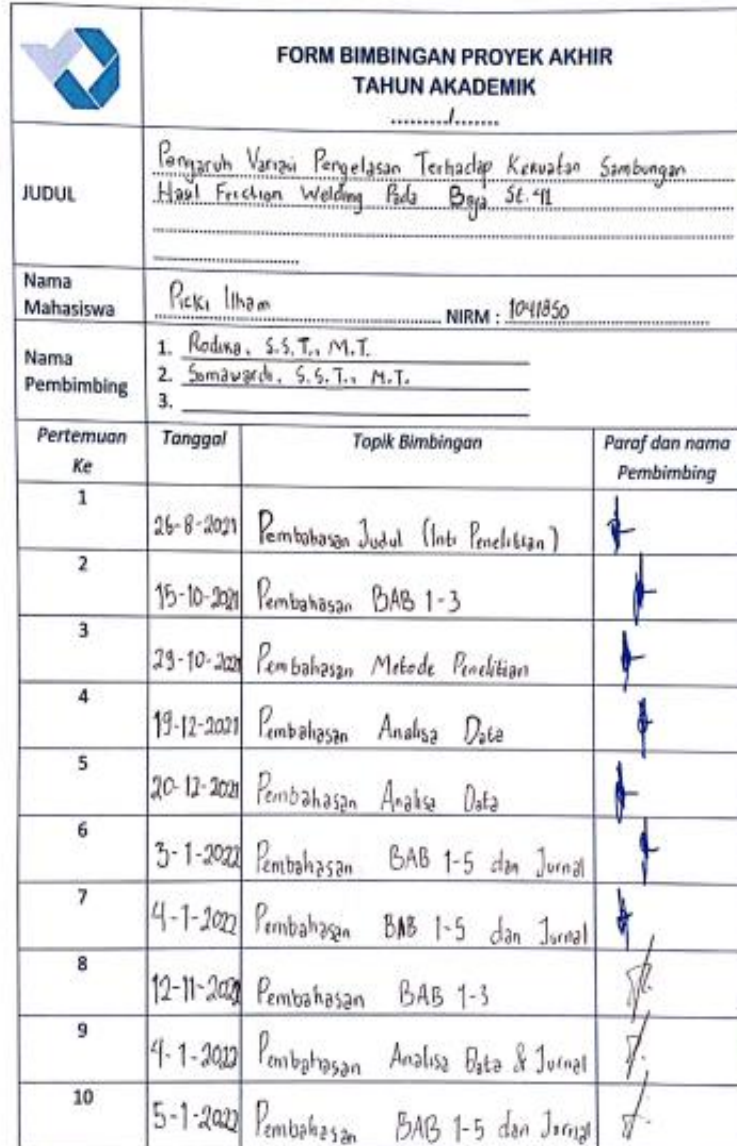 FORM BIMBINGAN PROYEK AKHIR
TAHUN AKADEMIK
........./.......
JUDUL
Pengaruh Variasi Pengelasan Terhadap Kekuatan Sambungan
Hasil Friction Welding Pada Baja St.41
Nama Mahasiswa Picki Ilham NIRM : 1041850
Nama Pembimbing
1. Rodika, S.S.T., M.T.
2. Somawardi, S.S.T., M.T.
3.
Pertemuan Ke Tanggal Topik Bimbingan Paraf dan nama Pembimbing
1 26-8-2021 Pembahasan Judul (Inti Penelitian)
2 15-10-2021 Pembahasan BAB 1-3
3 29-10-2021 Pembahasan Metode Penelitian
4 19-12-2021 Pembahasan Analisa Data
5 20-12-2021 Pembahasan Analisa Data
6 3-1-2022 Pembahasan BAB 1-5 dan Jurnal
7 4-1-2022 Pembahasan BAB 1-5 dan Jurnal
8 Pembahasan BAB 1-3
9 4-1-2022 Pembahasan Analisa Data & Jurnal
10 5-1-2022 Pembahasan BAB 1-5 dan Jurnal